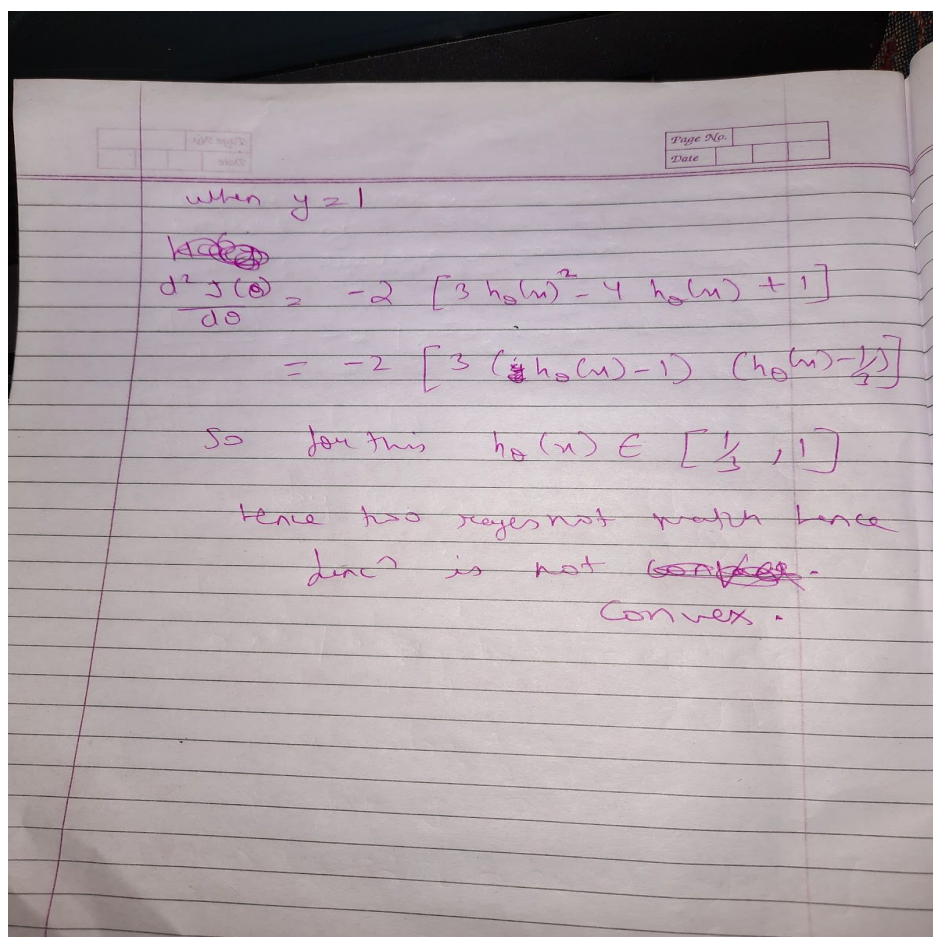 Page No.
Date
when y = 1
d² J(θ) / dθ = -2 [3 hθ(x)² - 4 hθ(x) + 1]
= -2 [3 (hθ(x) - 1) (hθ(x) - 1/3)]
So for this hθ(x) ∈ [1/3, 1]
Hence two not match hence
funcⁿ is not
Convex.